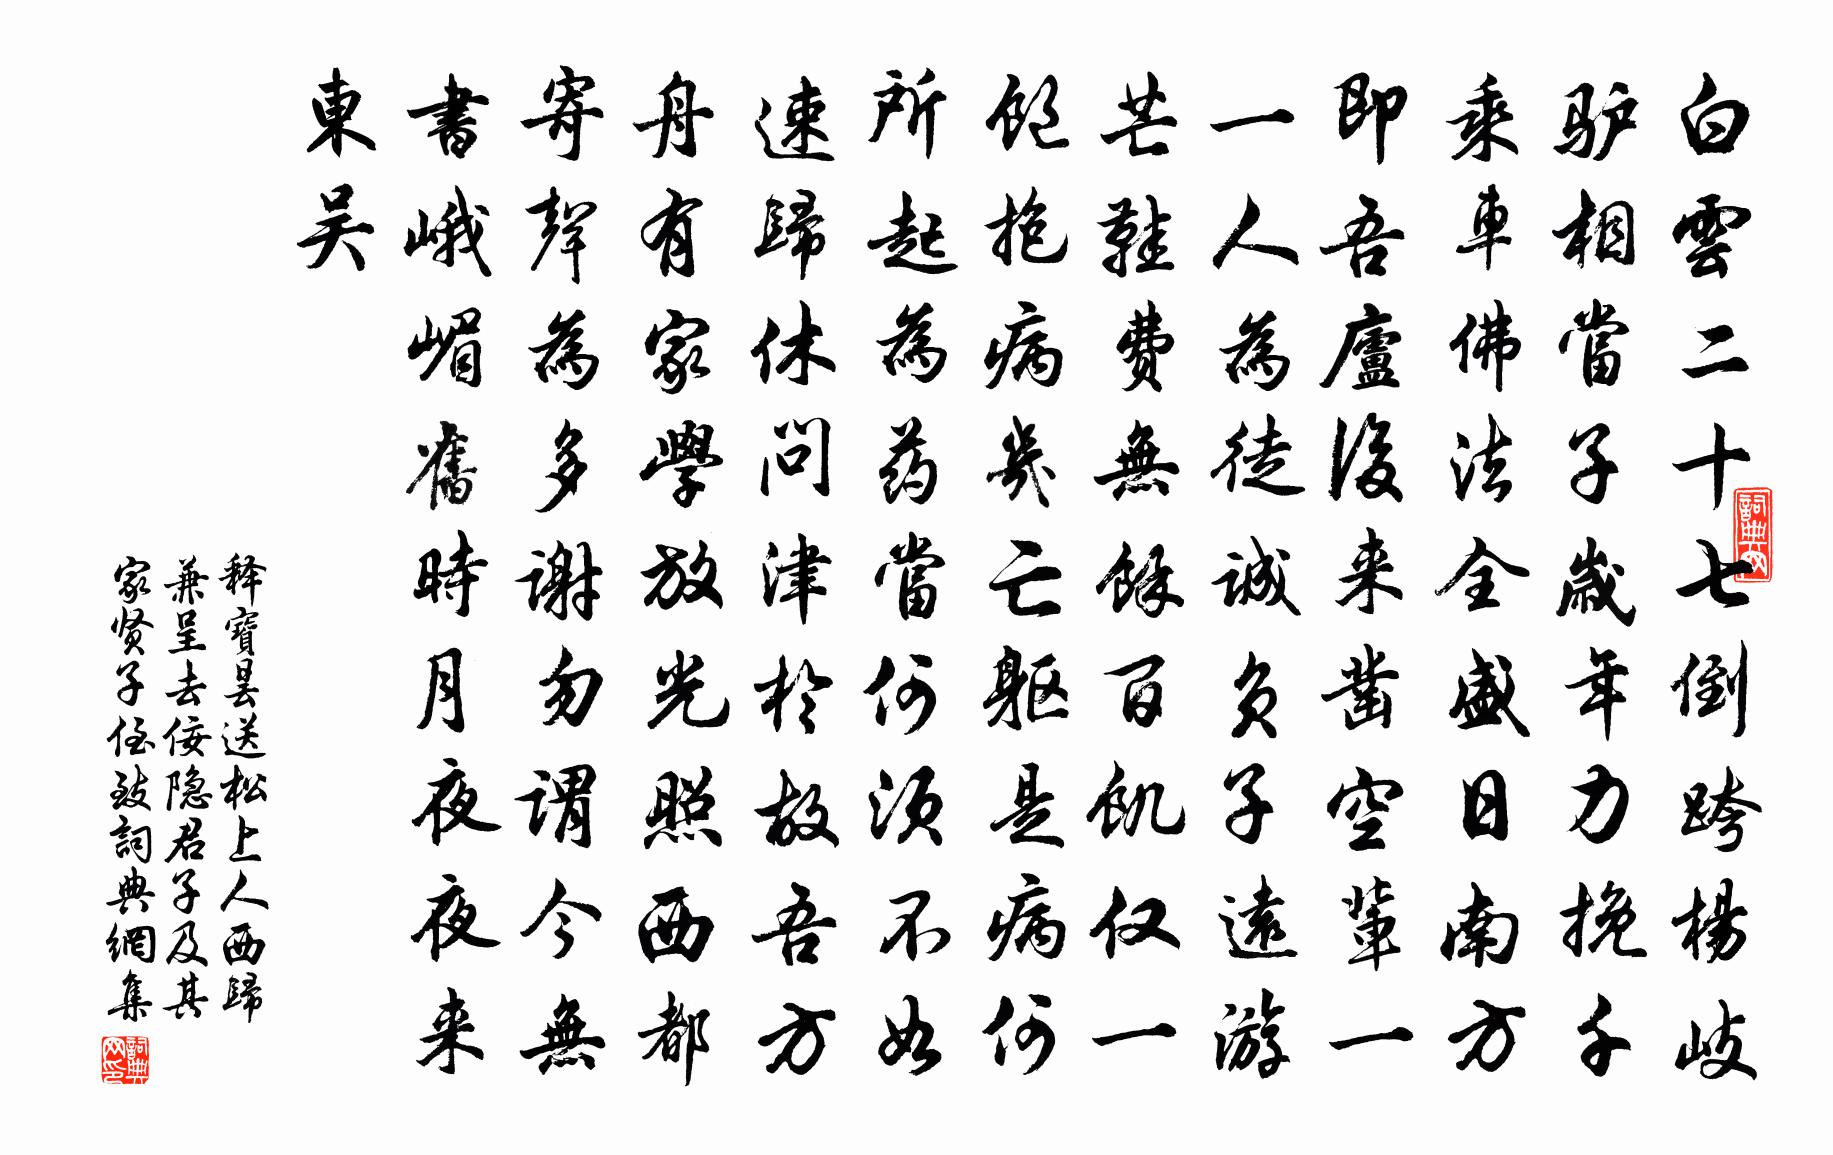 白雲二十七倒跨楊岐
驴相當子歲年力挽千
乘車佛法全盛日南方
即吾廬後来凿空輩一
一人為徒誠負子遠游
芒鞋費無餘百飢仅一
飽抱病幾亡軀是病何
所起為药當何須不如
速歸休問津於故吾方
舟有家學放光照西都
寄聲為多謝勿謂今無
書峨嵋舊時月夜夜来
東吴
释寶曇送松上人西歸
兼呈去佞隐君子及其
家贤子侄敍詞典網集
詞典网
詞典网印